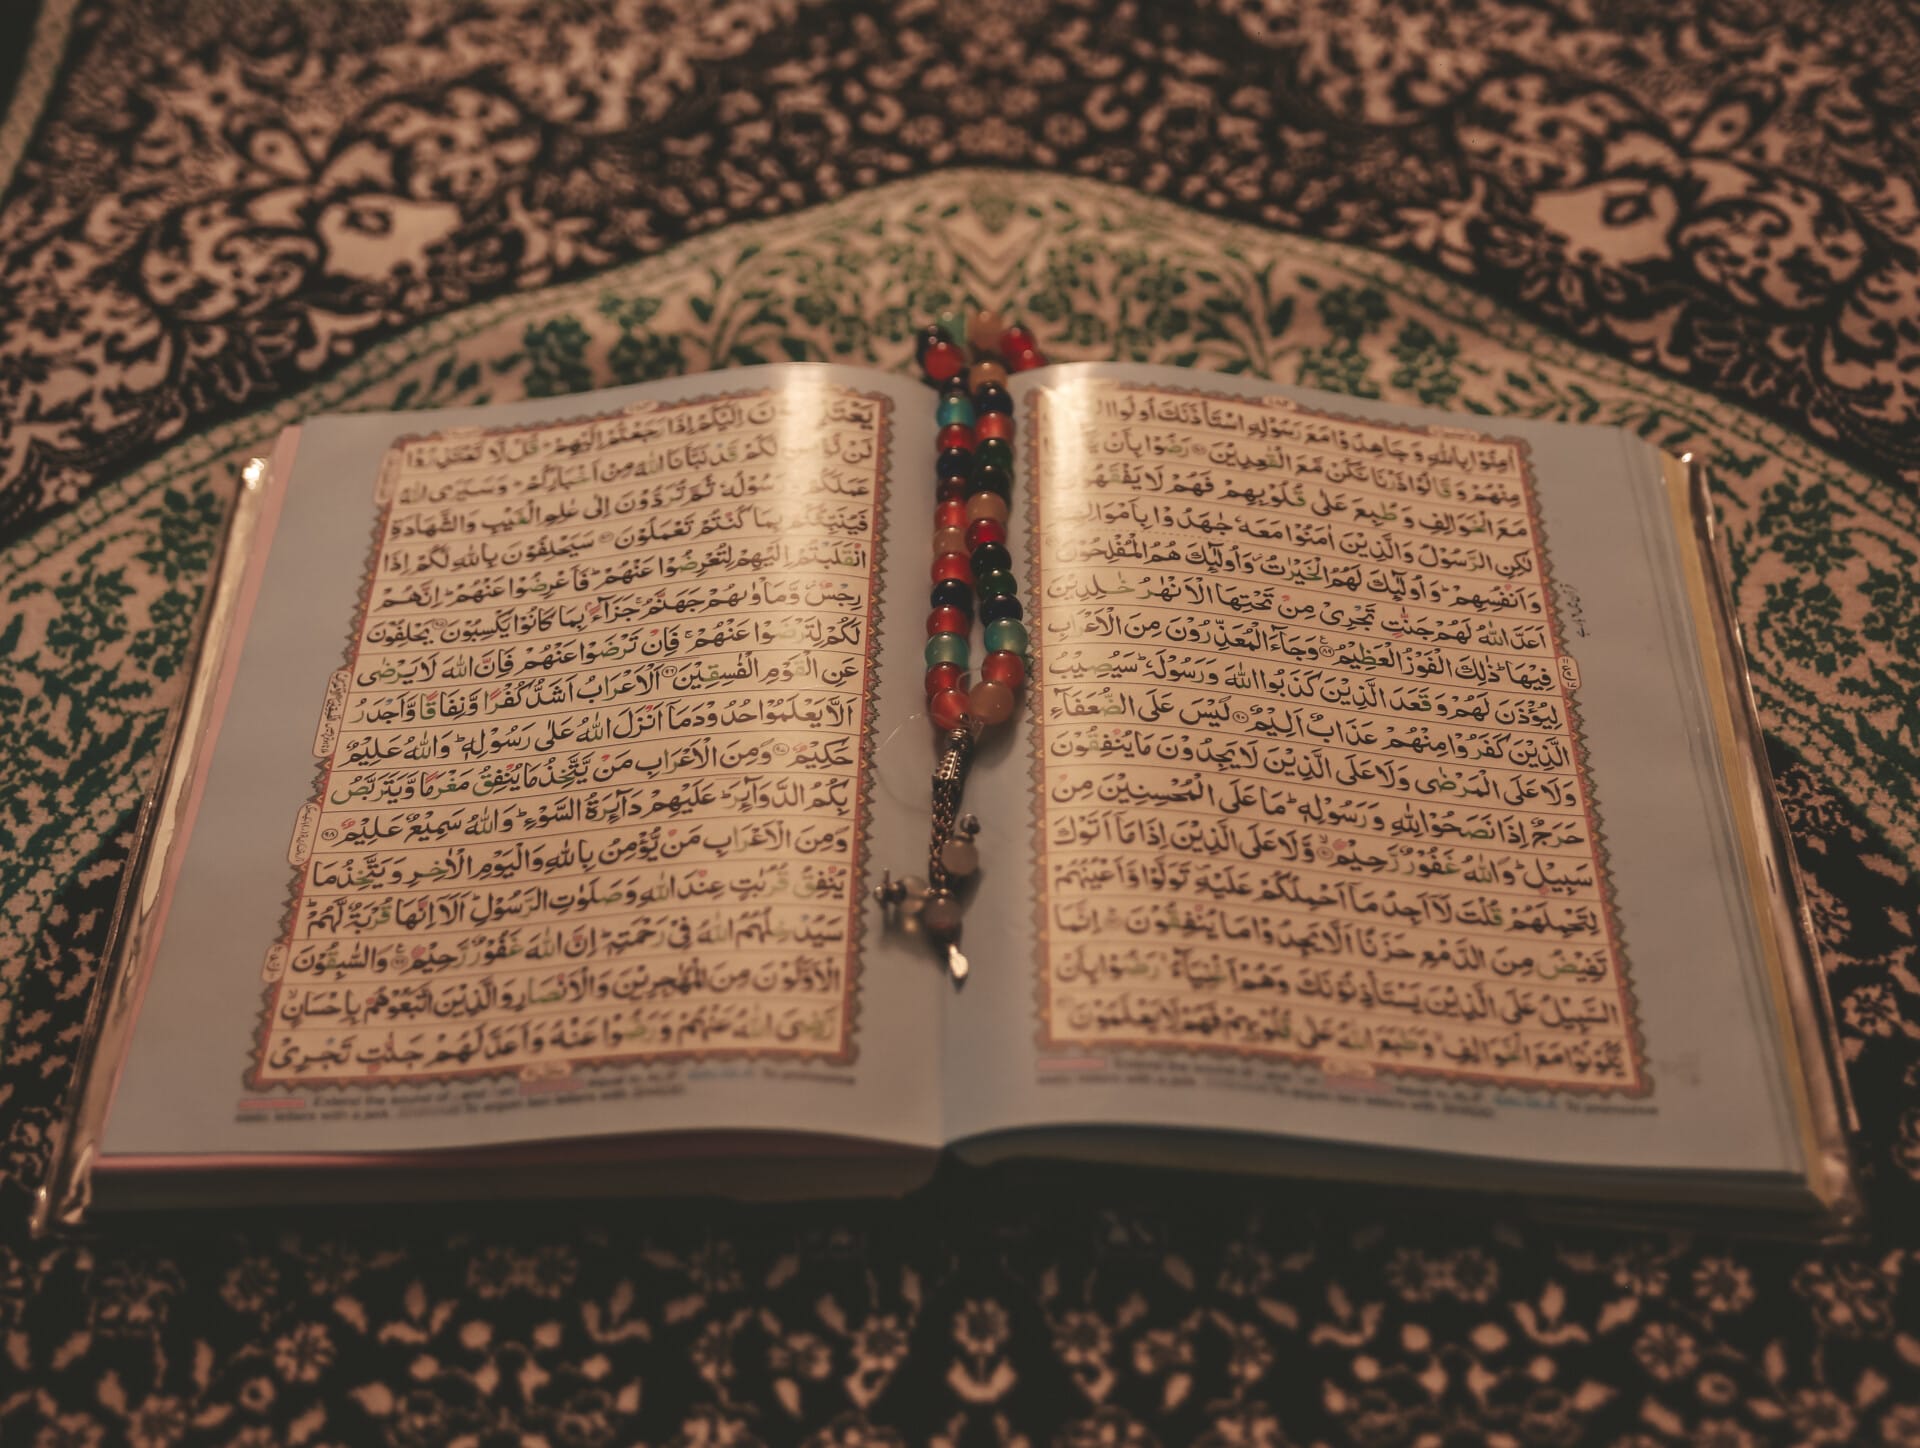 اٰمِنُوْا بِاللّٰهِ وَجَاهِدُوْا مَعَ رَسُوْلِهِ اسْتَاْذَنَكَ اُولُوا
مِنْهُمْ وَقَالُوْا ذَرْنَا نَكُنْ مَّعَ الْقٰعِدِيْنَ رَضُوْا بِاَنْ
مَعَ الْخَوَالِفِ وَطُبِعَ عَلٰى قُلُوْبِهِمْ فَهُمْ لَا يَفْقَهُوْنَ
لٰكِنِ الرَّسُوْلُ وَالَّذِيْنَ اٰمَنُوْا مَعَهٗ جٰهَدُوْا بِاَمْوَالِهِمْ
وَاَنْفُسِهِمْ ؕ وَاُولٰٓئِكَ لَهُمُ الْخَيْرٰتُ ؗ وَاُولٰٓئِكَ هُمُ الْمُفْلِحُوْنَ
اَعَدَّ اللّٰهُ لَهُمْ جَنّٰتٍ تَجْرِيْ مِنْ تَحْتِهَا الْاَنْهٰرُ خٰلِدِيْنَ
فِيْهَا ؕ ذٰلِكَ الْفَوْزُ الْعَظِيْمُ ۸۹ وَجَآءَ الْمُعَذِّرُوْنَ مِنَ الْاَعْرَابِ
لِيُؤْذَنَ لَهُمْ وَقَعَدَ الَّذِيْنَ كَذَبُوا اللّٰهَ وَرَسُوْلَهٗ ؕ سَيُصِيْبُ
الَّذِيْنَ كَفَرُوْا مِنْهُمْ عَذَابٌ اَلِيْمٌ ۹۰ لَيْسَ عَلَى الضُّعَفَآءِ
وَلَا عَلَى الْمَرْضٰى وَلَا عَلَى الَّذِيْنَ لَا يَجِدُوْنَ مَا يُنْفِقُوْنَ
حَرَجٌ اِذَا نَصَحُوْا لِلّٰهِ وَرَسُوْلِهٖ ؕ مَا عَلَى الْمُحْسِنِيْنَ مِنْ
سَبِيْلٍ ؕ وَاللّٰهُ غَفُوْرٌ رَّحِيْمٌ ۹۱ وَّلَا عَلَى الَّذِيْنَ اِذَا مَاۤ اَتَوْكَ
لِتَحْمِلَهُمْ قُلْتَ لَاۤ اَجِدُ مَاۤ اَحْمِلُكُمْ عَلَيْهِ تَوَلَّوْا وَّاَعْيُنُهُمْ
تَفِيْضُ مِنَ الدَّمْعِ حَزَنًا اَلَّا يَجِدُوْا مَا يُنْفِقُوْنَ ۹۲ اِنَّمَا
السَّبِيْلُ عَلَى الَّذِيْنَ يَسْتَاْذِنُوْنَكَ وَهُمْ اَغْنِيَآءُ ۚ رَضُوْا بِاَنْ
يَّكُوْنُوْا مَعَ الْخَوَالِفِ ۙ وَطَبَعَ اللّٰهُ عَلٰى قُلُوْبِهِمْ فَهُمْ لَا يَعْلَمُوْنَ
يَعْتَذِرُوْنَ اِلَيْكُمْ اِذَا رَجَعْتُمْ اِلَيْهِمْ ؕ قُلْ لَّا تَعْتَذِرُوْا
لَنْ نُّؤْمِنَ لَكُمْ قَدْ نَبَّاَنَا اللّٰهُ مِنْ اَخْبَارِكُمْ ؕ وَسَيَرَى اللّٰهُ
عَمَلَكُمْ وَرَسُوْلُهٗ ثُمَّ تُرَدُّوْنَ اِلٰى عٰلِمِ الْغَيْبِ وَالشَّهَادَةِ
فَيُنَبِّئُكُمْ بِمَا كُنْتُمْ تَعْمَلُوْنَ ۹۴ سَيَحْلِفُوْنَ بِاللّٰهِ لَكُمْ اِذَا
انْقَلَبْتُمْ اِلَيْهِمْ لِتُعْرِضُوْا عَنْهُمْ ؕ فَاَعْرِضُوْا عَنْهُمْ ؕ اِنَّهُمْ
رِجْسٌ وَّمَاْوٰىهُمْ جَهَنَّمُ ۚ جَزَآءًۢ بِمَا كَانُوْا يَكْسِبُوْنَ ۹۵ يَحْلِفُوْنَ
لَكُمْ لِتَرْضَوْا عَنْهُمْ ۚ فَاِنْ تَرْضَوْا عَنْهُمْ فَاِنَّ اللّٰهَ لَا يَرْضٰى
عَنِ الْقَوْمِ الْفٰسِقِيْنَ ۹۶ اَلْاَعْرَابُ اَشَدُّ كُفْرًا وَّنِفَاقًا وَّاَجْدَرُ
اَلَّا يَعْلَمُوْا حُدُوْدَ مَاۤ اَنْزَلَ اللّٰهُ عَلٰى رَسُوْلِهٖ ؕ وَاللّٰهُ عَلِيْمٌ
حَكِيْمٌ ۹۷ وَمِنَ الْاَعْرَابِ مَنْ يَّتَّخِذُ مَا يُنْفِقُ مَغْرَمًا وَّيَتَرَبَّصُ
بِكُمُ الدَّوَآئِرَ ؕ عَلَيْهِمْ دَآئِرَةُ السَّوْءِ ؕ وَاللّٰهُ سَمِيْعٌ عَلِيْمٌ ۹۸
وَمِنَ الْاَعْرَابِ مَنْ يُّؤْمِنُ بِاللّٰهِ وَالْيَوْمِ الْاٰخِرِ وَيَتَّخِذُ مَا
يُنْفِقُ قُرُبٰتٍ عِنْدَ اللّٰهِ وَصَلَوٰتِ الرَّسُوْلِ ؕ اَلَاۤ اِنَّهَا قُرْبَةٌ لَّهُمْ ؕ
سَيُدْخِلُهُمُ اللّٰهُ فِيْ رَحْمَتِهٖ ؕ اِنَّ اللّٰهَ غَفُوْرٌ رَّحِيْمٌ ۹۹ وَالسّٰبِقُوْنَ
الْاَوَّلُوْنَ مِنَ الْمُهٰجِرِيْنَ وَالْاَنْصَارِ وَالَّذِيْنَ اتَّبَعُوْهُمْ بِاِحْسَانٍ
رَّضِيَ اللّٰهُ عَنْهُمْ وَرَضُوْا عَنْهُ وَاَعَدَّ لَهُمْ جَنّٰتٍ تَجْرِيْ
Extend the sound of